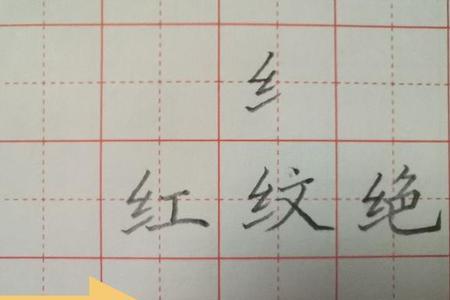 纟
红纹绝